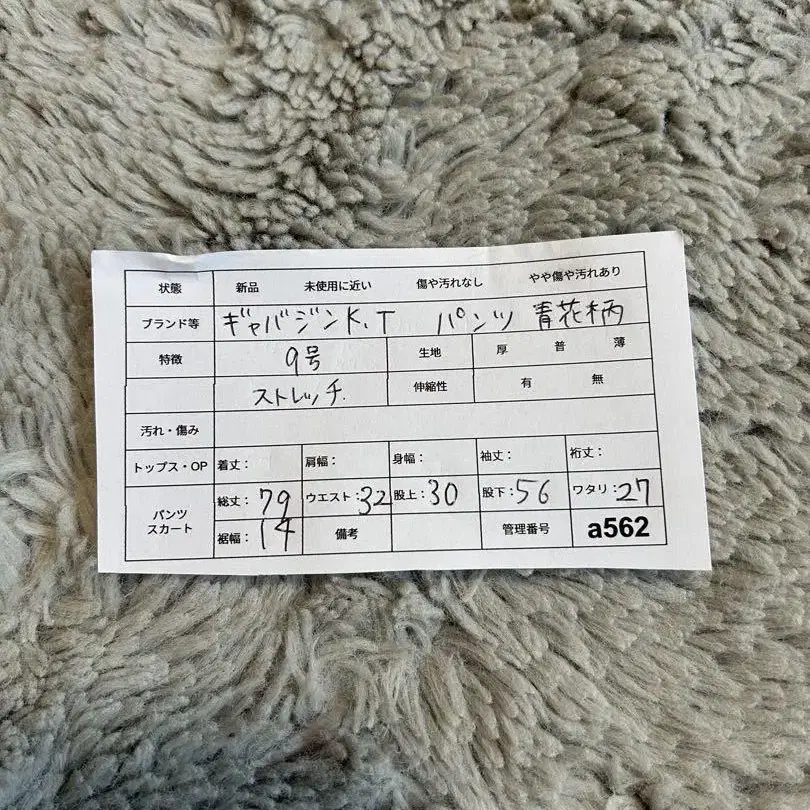 状態 新品 未使用に近い 傷や汚れなし やや傷や汚れあり
ブランド等 ギャバジンK.T パンツ 青花柄
特徴 9号 生地 厚 普 薄
ストレッチ 伸縮性 有 無
汚れ・傷み
トップス・OP 着丈： 肩幅： 身幅： 袖丈： 裄丈：
パンツ スカート 総丈：79 ウエスト：32 股上：30 股下：56 ワタリ：27
裾幅：14 備考 管理番号 a562